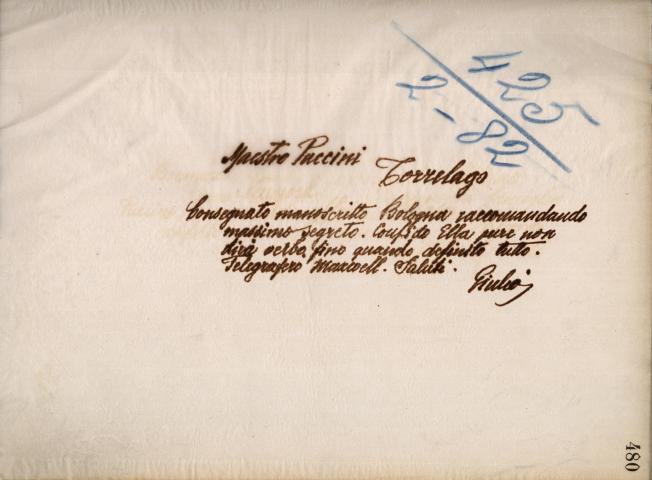 425
2-82
Maestro Puccini
Torrelago
Consegnato manoscritto Bologna raccomandando
massimo segreto. Confido Ella pure non
dirà verbo fino quando definito tutto.
Telegrafero Maxwell. Saluti.
Giulio
480